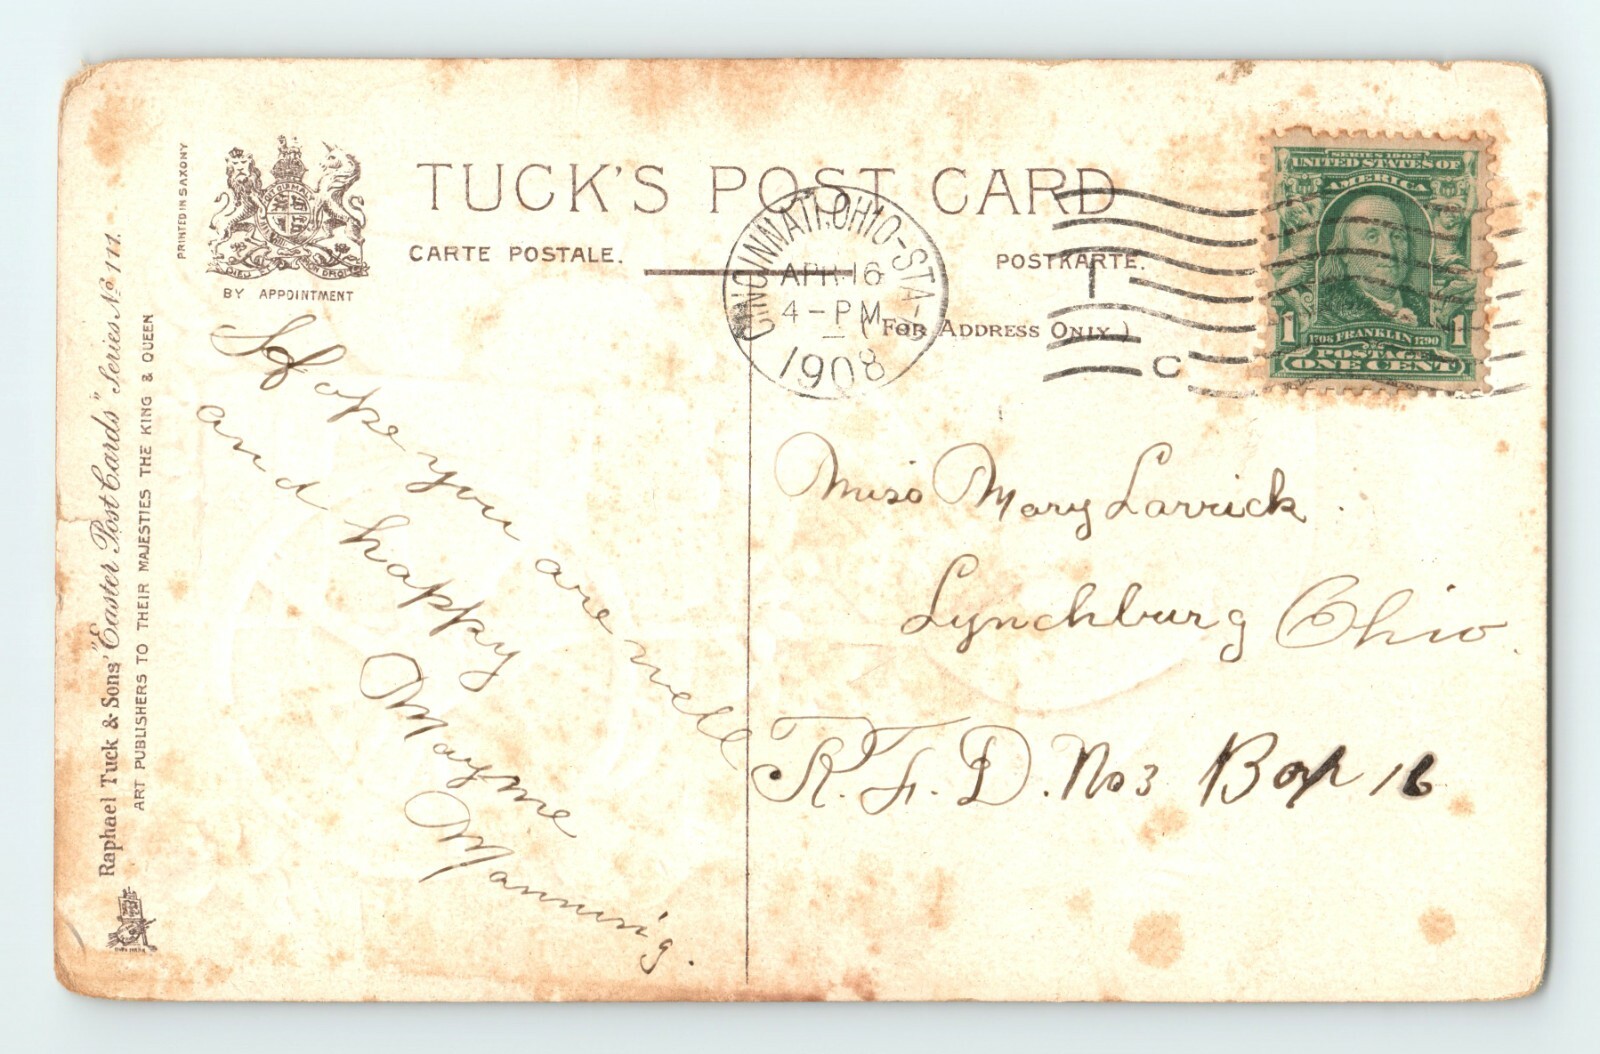 PRINTED IN SAXONY
DIEU ET MON DROIT
BY APPOINTMENT
TUCK'S POST CARD
CARTE POSTALE.
POSTKARTE.
(For Address Only.)
CINCINNATI, OHIO-STA-
APR 16
4-PM
1908
C
SERIES 1902
UNITED STATES OF
AMERICA
1 1706 FRANKLIN 1790 1
POSTAGE
ONE CENT
Raphael Tuck & Sons' "Easter Post Cards" Series No. 111.
ART PUBLISHERS TO THEIR MAJESTIES THE KING & QUEEN
Hope you are well
and happy
Mayme
Manning.
Miss Mary Larrick.
Lynchburg Ohio.
R.F.D. No 3 Box 16